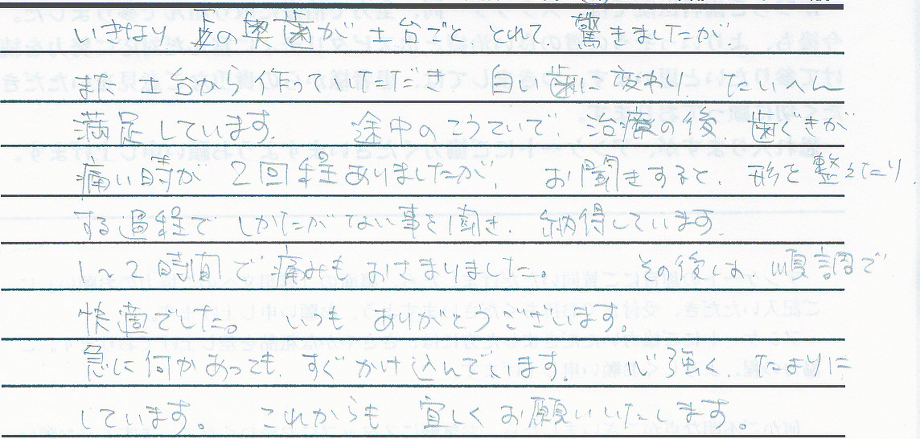 いきなり 左の奥歯が 土台ごと とれて 驚きましたが
また 土台から 作っていただき 白い歯に変わり、たいへん
満足しています。 途中のこうていで、治療の後、歯ぐきが
痛い時が 2回程ありましたが、 お聞きすると、形を整えたり
する過程で しかたがない事を聞き、納得しています。
1〜2時間で痛みもおさまりました。 その後しは 順調で
快適でした。 いつも ありがとうございます。
急に何かあっても、すぐ かけ込んでいます。 心強く、たよりに
しています。 これからも 宜しくお願いいたします。